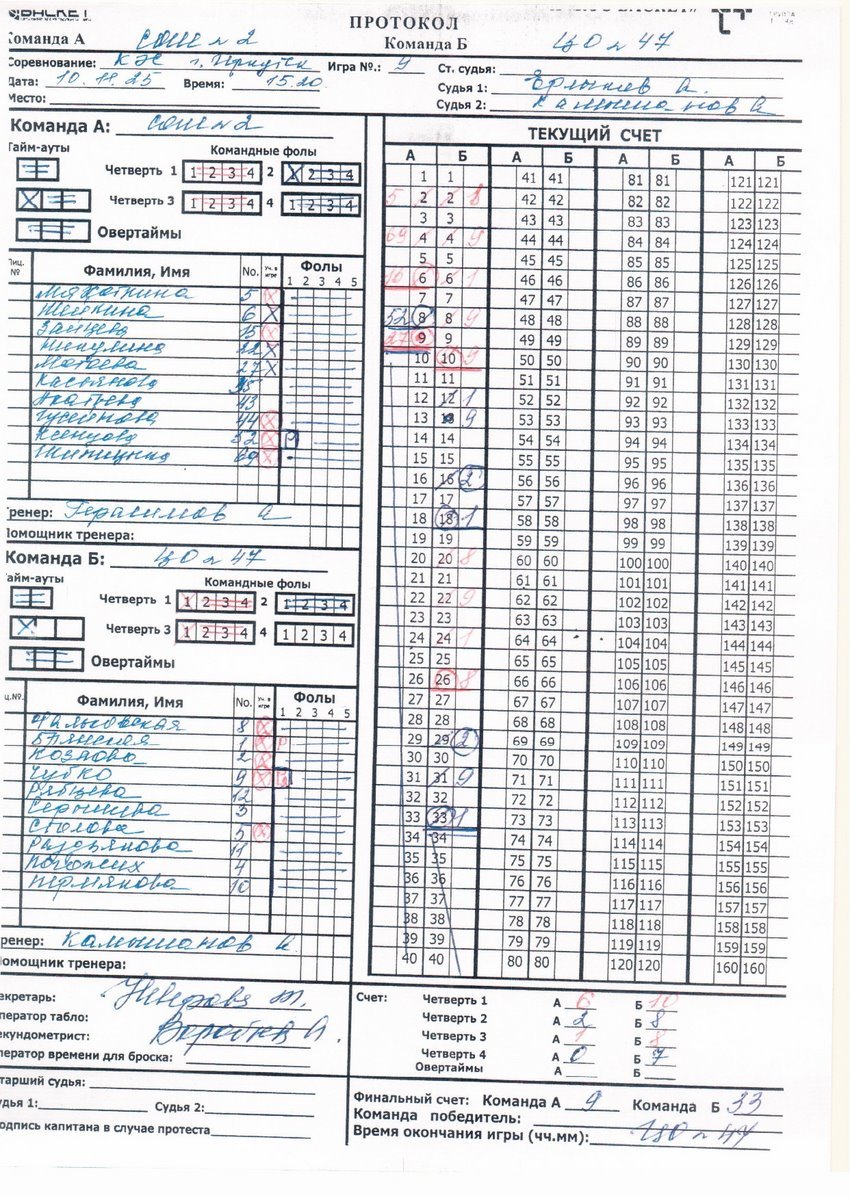 ПРОТОКОЛ
Команда А СОШ №2 Команда Б ЦО №47
Соревнование: КЭС г. Иркутск Игра №.: 9 Ст. судья:
Дата: 10.11.25 Время: 15.20 Судья 1:
Место: Судья 2: Камышанов А
Команда А: СОШ №2
Тайм-ауты Командные фолы
Четверть 1 1 2 3 4 2 X 2 3 4
X Четверть 3 1 2 3 4 4 1 2 3 4
Овертаймы
Лиц. № Фамилия, Имя No. Уч. в игре Фолы
1 2 3 4 5
5 X
6 X
Зайцева 15 X
Никулина 22 X
Матоева 27 X
Касьянова 35
43
Гусейнова 44 X
Ксенцова 52 X P
69 X
Тренер: Герасимов А
Помощник тренера:
Команда Б: ЦО №47
Тайм-ауты Командные фолы
Четверть 1 1 2 3 4 2 1 2 3 4
X Четверть 3 1 2 3 4 4 1 2 3 4
Овертаймы
Лиц.№. Фамилия, Имя No. Уч. в игре Фолы
1 2 3 4 5
8 X
Брянская 1 X P
Козлова 2 X
Чубко 9 X
Рябцева 12
3
Столова 5 X
11
Погожих 4
Пермякова 10
Тренер: Камышанов А
Помощник тренера:
ТЕКУЩИЙ СЧЕТ
А Б А Б А Б А Б
1 1 41 41 81 81 121 121
5 2 2 8 42 42 82 82 122 122
3 3 43 43 83 83 123 123
69 4 4 9 44 44 84 84 124 124
5 5 45 45 85 85 125 125
6 6 1 46 46 86 86 126 126
7 7 47 47 87 87 127 127
52 8 8 9 48 48 88 88 128 128
27 9 9 49 49 89 89 129 129
10 10 9 50 50 90 90 130 130
11 11 51 51 91 91 131 131
12 12 1 52 52 92 92 132 132
13 13 9 53 53 93 93 133 133
14 14 54 54 94 94 134 134
15 15 55 55 95 95 135 135
16 16 2 56 56 96 96 136 136
17 17 57 57 97 97 137 137
18 18 1 58 58 98 98 138 138
19 19 59 59 99 99 139 139
20 20 8 60 60 100 100 140 140
21 21 61 61 101 101 141 141
22 22 9 62 62 102 102 142 142
23 23 63 63 103 103 143 143
24 24 1 64 64 104 104 144 144
25 25 65 65 105 105 145 145
26 26 8 66 66 106 106 146 146
27 27 67 67 107 107 147 147
28 28 68 68 108 108 148 148
29 29 2 69 69 109 109 149 149
30 30 70 70 110 110 150 150
31 31 9 71 71 111 111 151 151
32 32 72 72 112 112 152 152
33 33 1 73 73 113 113 153 153
34 34 74 74 114 114 154 154
35 35 75 75 115 115 155 155
36 36 76 76 116 116 156 156
37 37 77 77 117 117 157 157
38 38 78 78 118 118 158 158
39 39 79 79 119 119 159 159
40 40 80 80 120 120 160 160
Секретарь:
Оператор табло:
Секундометрист:
Оператор времени для броска:
Старший судья:
Судья 1: Судья 2:
Подпись капитана в случае протеста
Счет: Четверть 1 А 6 Б 10
Четверть 2 А 2 Б 8
Четверть 3 А 1 Б 8
Четверть 4 А 0 Б 7
Овертаймы А Б
Финальный счет: Команда А 9 Команда Б 33
Команда победитель:
Время окончания игры (чч.мм): ЦО №47